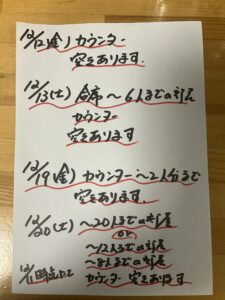 12/12(金) カウンター
空きあります.
12/13(土) 会席 〜6人までの部屋
カウンター
空きあります
12/19(金) カウンター〜2人分まで
空きあります.
12/20(土) 〜20人までの部屋
or
〜12人までの部屋
〜8人までの部屋
カウンター 空きあります
12/11時点にて